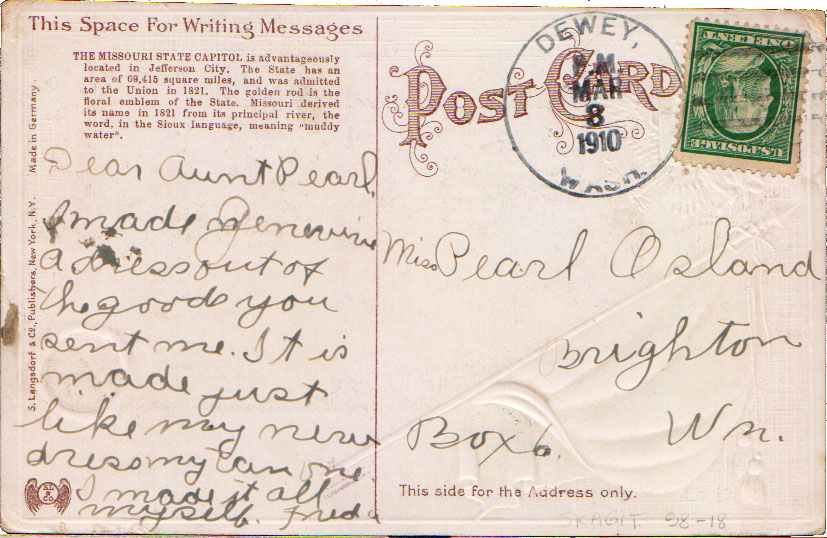 This Space For Writing Messages
THE MISSOURI STATE CAPITOL is advantageously
located in Jefferson City. The State has an
area of 69,415 square miles, and was admitted
to the Union in 1821. The golden rod is the
floral emblem of the State. Missouri derived
its name in 1821 from its principal river, the
word, in the Sioux language, meaning "muddy
water".
Made in Germany.
S. Langsdorf & Co., Publishers, New York, N.Y.
Dear Aunt Pearl.
I made Genevive
a dress out of
the goods you
sent me. It is
made just
like may new
dress my tan one
I made it all
myself. Freda
S.L.
& CO.
POST CARD
DEWEY,
MAR
8
1910
WASH.
ONE CENT
U.S. POSTAGE
Miss Pearl Osland
Brighton
Box 6. Wn.
This side for the Address only.
SKAGIT 98-18